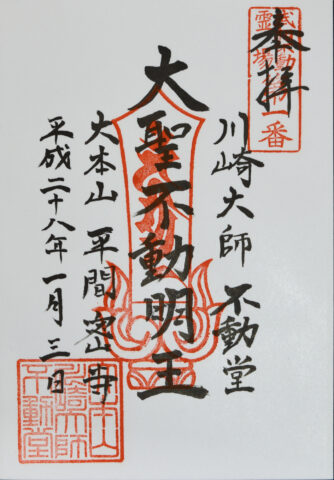 奉拝
武相不動尊霊場第一番
川崎大師 不動堂
大聖不動明王
大本山 平間寺
平成二十八年一月三日
大本山川崎大師不動堂